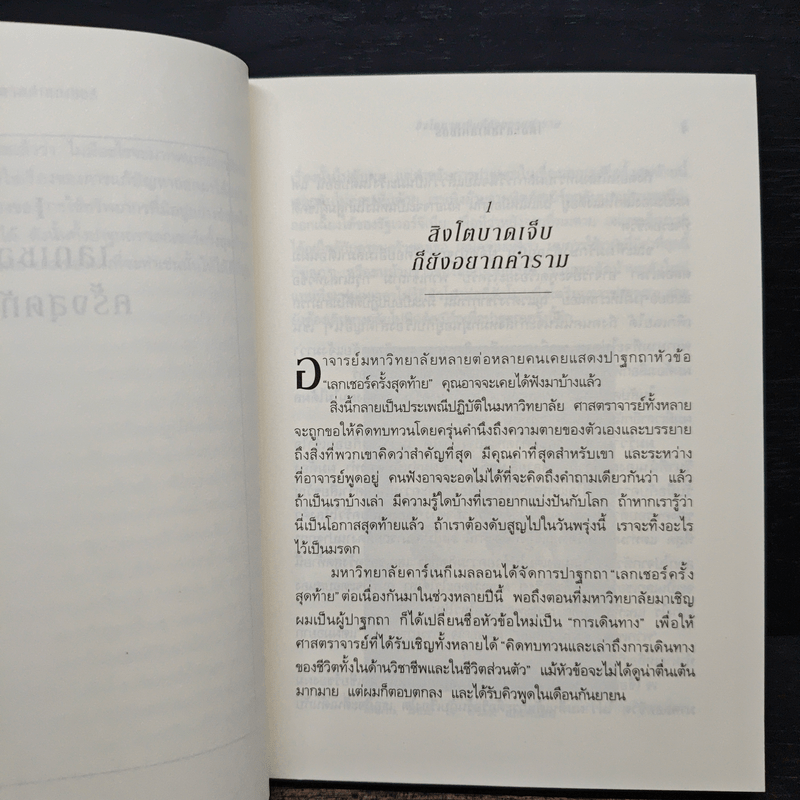 1
สิงโตบาดเจ็บ
ก็ยังอยากคำราม
อาจารย์มหาวิทยาลัยหลายต่อหลายคนเคยแสดงปาฐกถาหัวข้อ
"เลกเชอร์ครั้งสุดท้าย" คุณอาจจะเคยได้ฟังมาบ้างแล้ว
สิ่งนี้กลายเป็นประเพณีปฏิบัติในมหาวิทยาลัย ศาสตราจารย์ทั้งหลาย
จะถูกขอให้คิดทบทวนโดยครุ่นคำนึงถึงความตายของตัวเองและบรรยาย
ถึงสิ่งที่พวกเขาคิดว่าสำคัญที่สุด มีคุณค่าที่สุดสำหรับเขา และระหว่าง
ที่อาจารย์พูดอยู่ คนฟังอาจจะอดไม่ได้ที่จะคิดถึงคำถามเดียวกันว่า แล้ว
ถ้าเป็นเราบ้างเล่า มีความรู้ใดบ้างที่เราอยากแบ่งปันกับโลก ถ้าหากเรารู้ว่า
นี่เป็นโอกาสสุดท้ายแล้ว ถ้าเราต้องดับสูญไปในวันพรุ่งนี้ เราจะทิ้งอะไร
ไว้เป็นมรดก
มหาวิทยาลัยคาร์เนกีเมลลอนได้จัดการปาฐกถา "เลกเชอร์ครั้ง
สุดท้าย" ต่อเนื่องกันมาในช่วงหลายปีนี้ พอถึงตอนที่มหาวิทยาลัยมาเชิญ
ผมเป็นผู้ปาฐกถา ก็ได้เปลี่ยนชื่อหัวข้อใหม่เป็น "การเดินทาง" เพื่อให้
ศาสตราจารย์ที่ได้รับเชิญทั้งหลายได้ "คิดทบทวนและเล่าถึงการเดินทาง
ของชีวิตทั้งในด้านวิชาชีพและในชีวิตส่วนตัว" แม้หัวข้อจะไม่ได้ดูน่าตื่นเต้น
มากมาย แต่ผมก็ตอบตกลง และได้รับคิวพูดในเดือนกันยายน